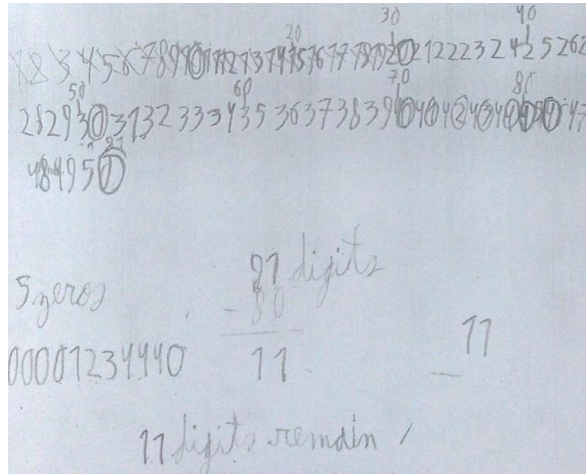 20 30 40
12345678910111213141516171819202122232425262
50 60 70 80
28293031323334353637383940414243444547
91
484950
91 digits
5 zeros - 80
00001234440 11 11
11 digits remain